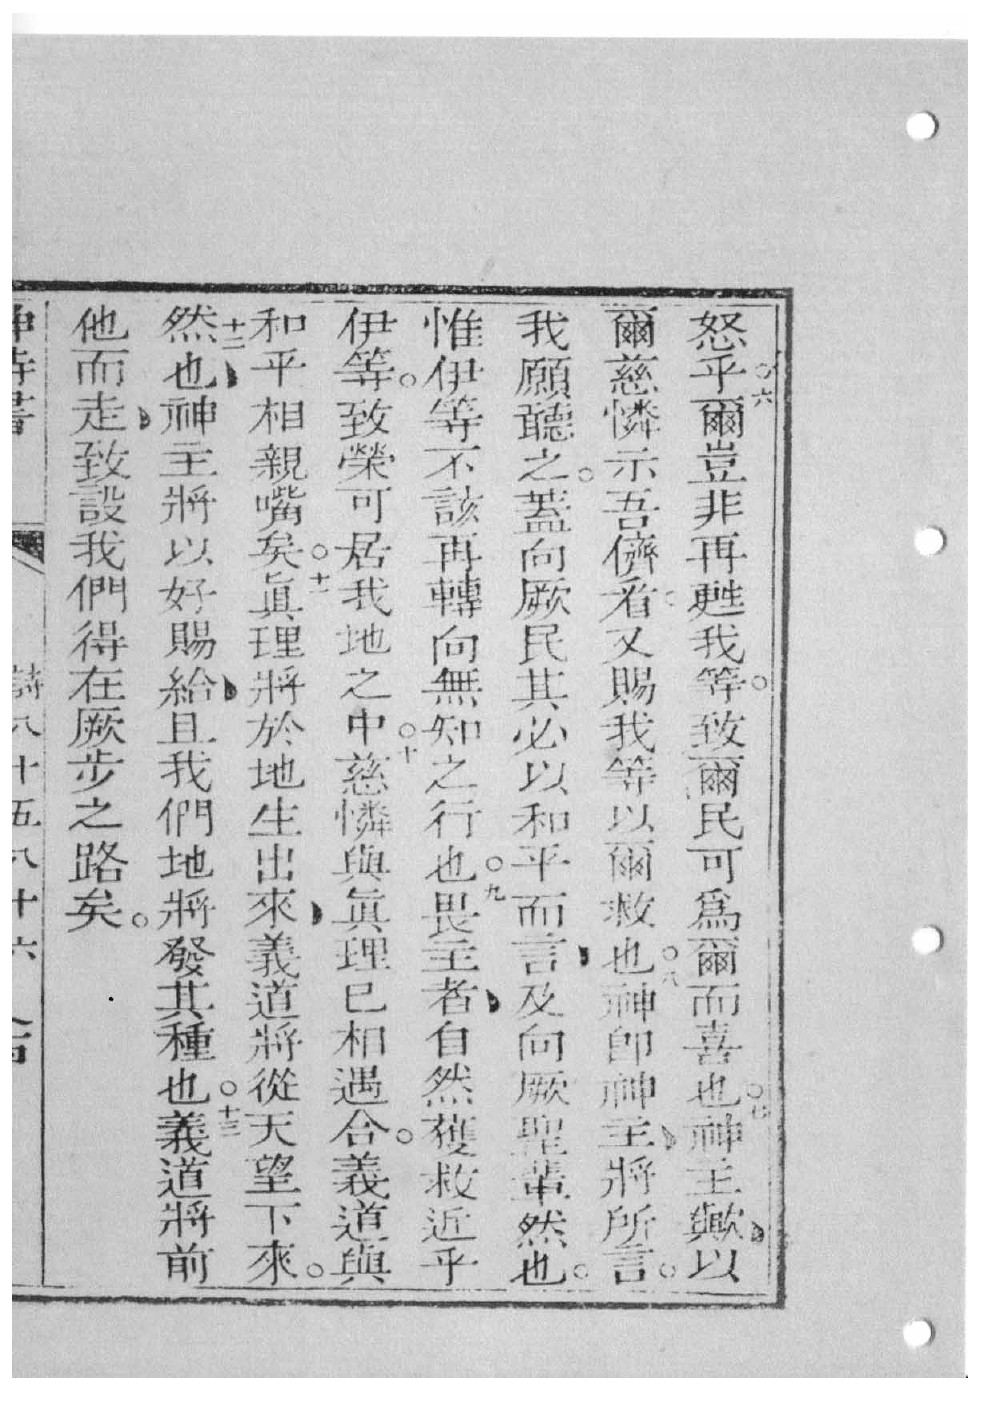 怒乎○六爾豈非再甦我等○致爾民可爲爾而喜也○七神主歟以
爾慈憐示吾儕看○又賜我等以爾救也○八神卽神主將所言○
我願聽之○蓋向厥民其必以和平而言及向厥聖輩然也○
惟伊等不該再轉向無知之行也○九畏主者自然獲救近乎
伊等○致榮可居我地之中○十慈憐與眞理已相遇合○義道與
和平相親嘴矣○十一眞理將於地生出來義道將從天望下來○
十二然也神主將以好賜給且我們地將發其種也○十三義道將前
他而走致設我們得在厥步之路矣○
神詩書 詩八十五八十六